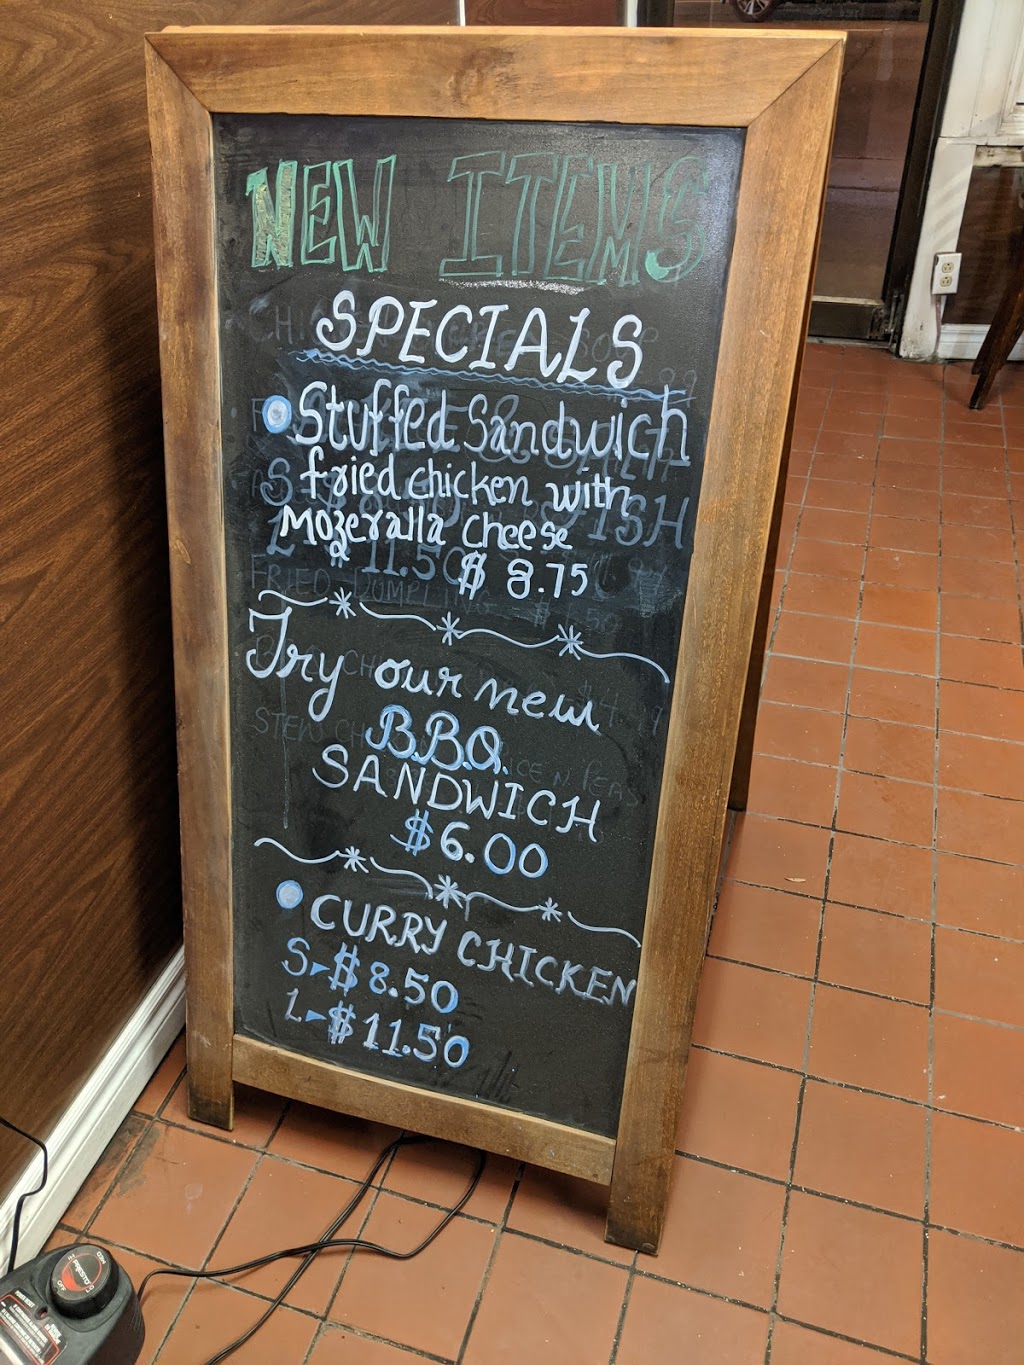 NEW ITEMS
SPECIALS
Stuffed Sandwich
fried chicken with
Mozeralla cheese
$ 8.75
Try our new
B.B.Q.
SANDWICH
$6.00
CURRY CHICKEN
S $8.50
L $11.50
FRIED DUMPLING